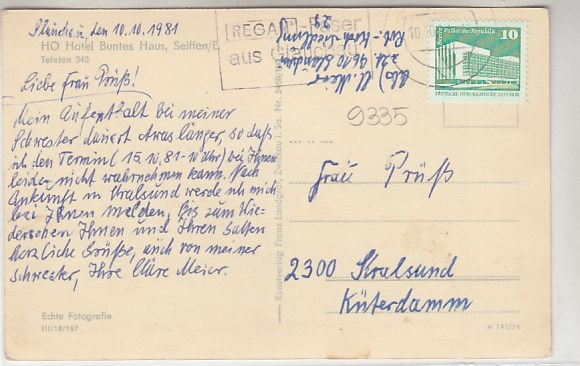 Glauchau, den 10.10.1981
HO Hotel Buntes Haus, Seiffen/E
Telefon 343
Liebe Frau Prüß!
Mein Aufenthalt bei meiner
Schwester dauert etwas länger, so daß
ich den Termin (15.10.81-10 Uhr) bei Ihnen
leider nicht wahrnehmen kann. Nach
Ankunft in Stralsund werde ich mich
bei Ihnen melden. Bis zum Wie-
dersehen Ihnen und Ihren Gatten
herzliche Grüße, auch von meiner
Schwester, Ihre Cläre Meier.
Echte Fotografie
III/18/197
REGA
aus Glauchau
Abs) Meier
z.Zt. 9610 Glauchau
29
10
Palast der Republik
DEUTSCHE DEMOKRATISCHE REPUBLIK
9335
Frau Prüß
2300 Stralsund
Küterdamm
Kunstverlag Franz Landgraf, Zwickau i. Sa.
A 143/54